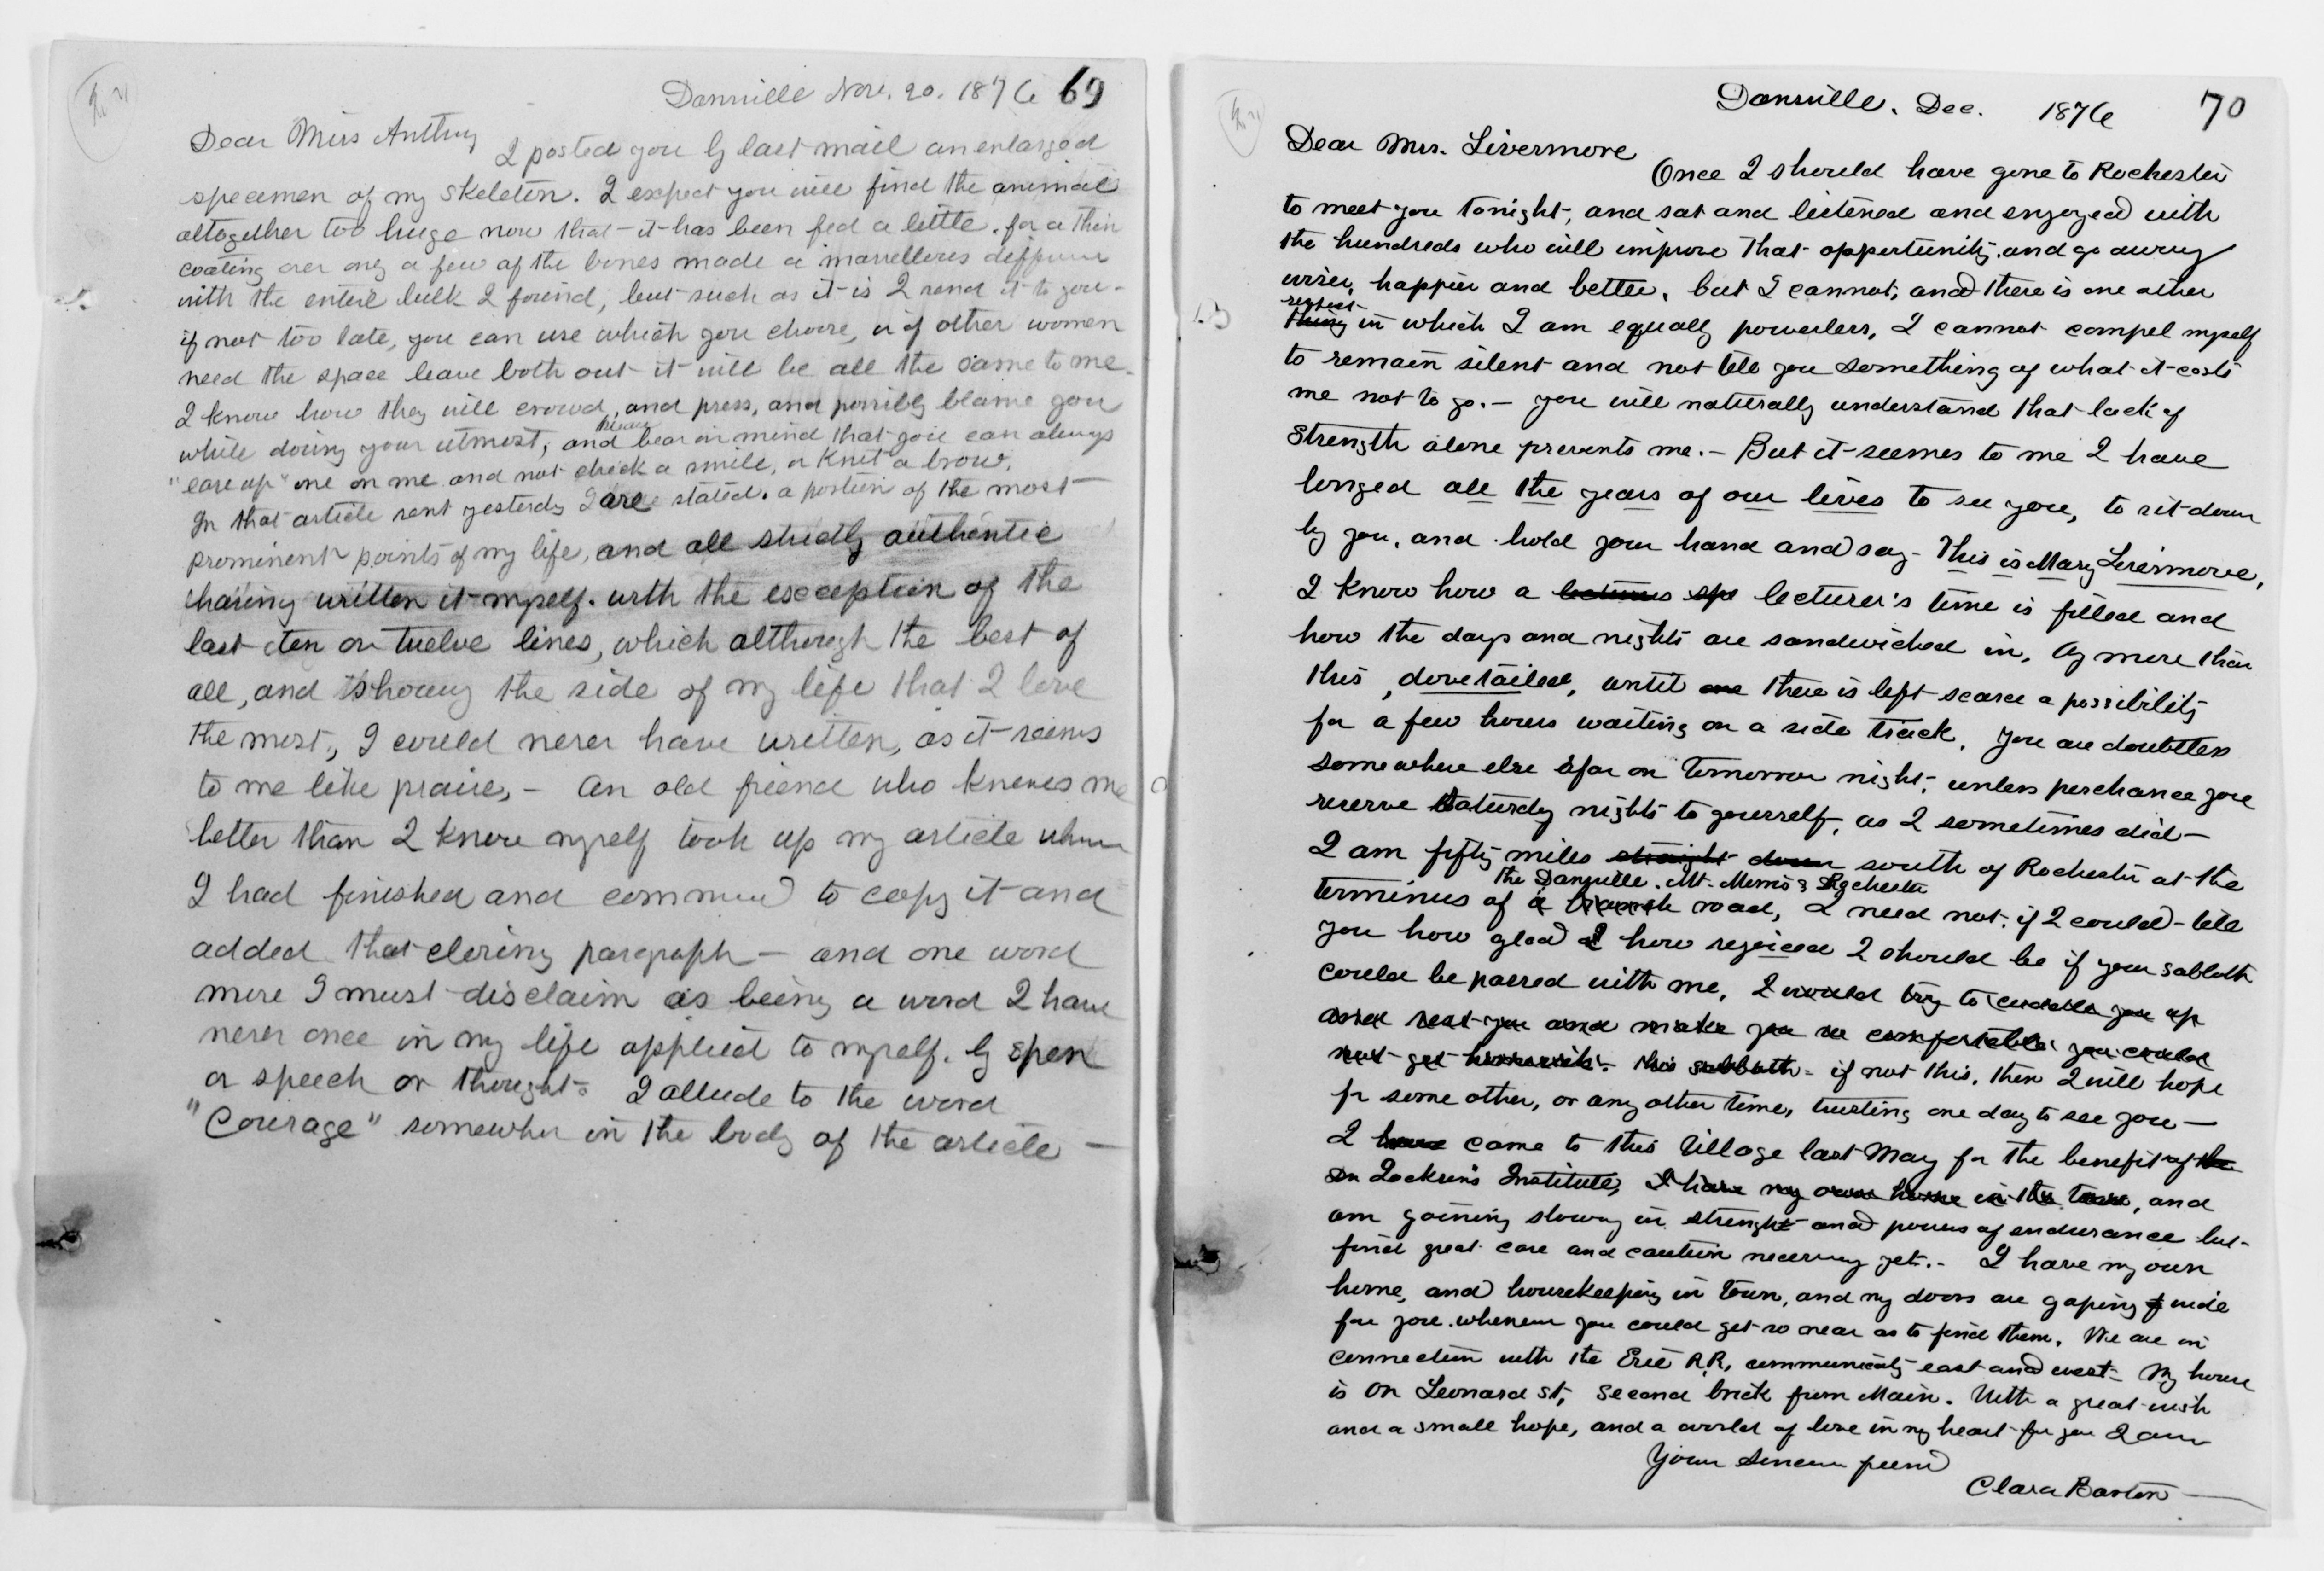 Dansville Nov. 20. 1876 69
Dear Miss Anthony
I posted you by last mail an enlarged
specimen of my skeleton. I expect you will find the animal
altogether too huge now that it has been fed a little. for a thin
coating over only a few of the bones made a marvellous differnce
with the entire bulk I found, but such as it is I send it to you -
if not too late, you can use which you choose, or if other women
need the space leave both out it will be all the same to me -
I know how they will crowd, and press, and possibly blame you
while doing your utmost, and please bear in mind that you can always
"ease up" one on me and not check a smile, or knit a brow.
In that article sent yesterday I are stated. a portion of the most
prominent points of my life, and all strictly authentic
having written it myself. with the exception of the
last ten or twelve lines, which although the best of
all, and showing the side of my life that I love
the most, I could never have written, as it seems
to me like praise, - An old friend who knows me
better than I know myself took up my article when
I had finished and commenced to copy it and
added that closing paragraph - and one word
more I must disclaim as being a word I have
never once in my life applied to myself. by pen
or speech or thought. I allude to the word
"Courage" somewher in the body of the article -
Dansville. Dec. 1876 70
Dear Mrs. Livermore
Once I should have gone to Rochester
to meet you tonight, and sat and listened and enjoyed with
the hundreds who will improve that opportunity. and go away
wiser, happier and better. but I cannot, and there is one other
respect
thing in which I am equally powerless, I cannot compel myself
to remain silent and not tell you something of what it costs
me not to go. - you will naturally understand that lack of
strength alone prevents me. - But it seemes to me I have
longed all the years of our lives to see you, to sit down
by you, and hold your hand and say - This is Mary Livermore.
I know how a lecturers spe lecturer's time is filled and
how the days and nights are sandwiched in. Ay more than
this, dovetailed, until one there is left scarce a possibility
for a few hours waiting on a side track. You are doubtless
somewhere else afar on tomorrow night, unless perchance you
reserve Saturday nights to yourself, as I sometimes did -
I am fifty miles straight down south of Rochester at the
the Dansville. Mt. Morris & Rochester
terminus of a branch road, I need not, if I could - tell
you how glad I how rejoiced I should be if your sabbath
could be passed with me, I would try to cuddle you up
and rest you and make you so comfortable you could
not get homesick. this sabbath - if not this, then I will hope
for some other, or any other time, trusting one day to see you -
I have came to this Village last May for the benefit of the
Dr Jackson's Institute, I have my own home in the town, and
am gaining slowly in strenght and powers of endurance but -
find great care and caution necessary yet. - I have my own
home, and housekeeping in town, and my doors are gaping wide
for you whenever you could get so near as to find them. We are in
connection with the Erie R.R, communicatg east and west - My house
is on Leonard st, second brick from Main. With a great wish
and a small hope, and a world of love in my heart for you I am
Your sincere friend
Clara Barton